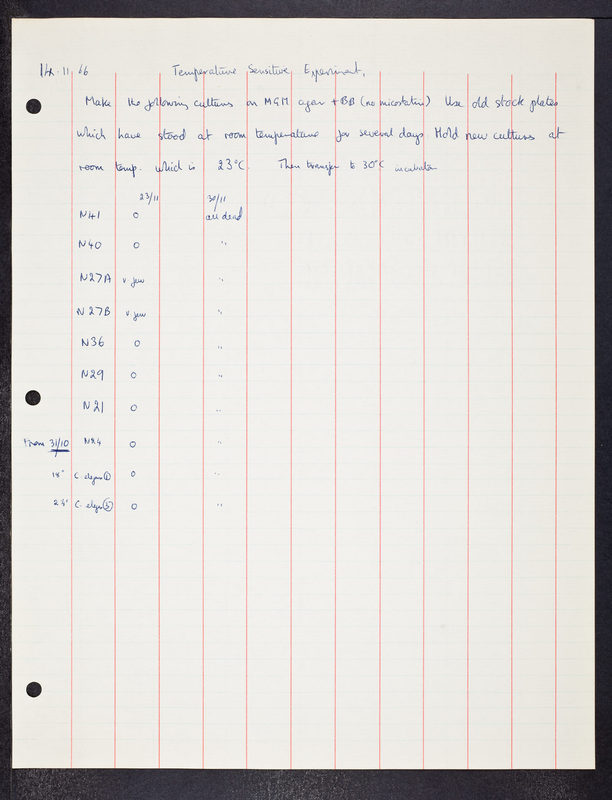 14.11.66 Temperature Sensitive Experiment.
Make the following cultures on MGM agar + BB (no micostatin) Use old stock plates
which have stood at room temperature for several days. Hold new cultures at
room temp. which is 23°C. Then transfer to 30°C incubator
23/11 30/11
N41 0 all dead
N40 0 "
N27A v. few "
N27B v. few "
N36 0 "
N29 0 "
N21 0 "
From 31/10 N24 0 "
18° C. elegans 0 "
C. elegans 0 "